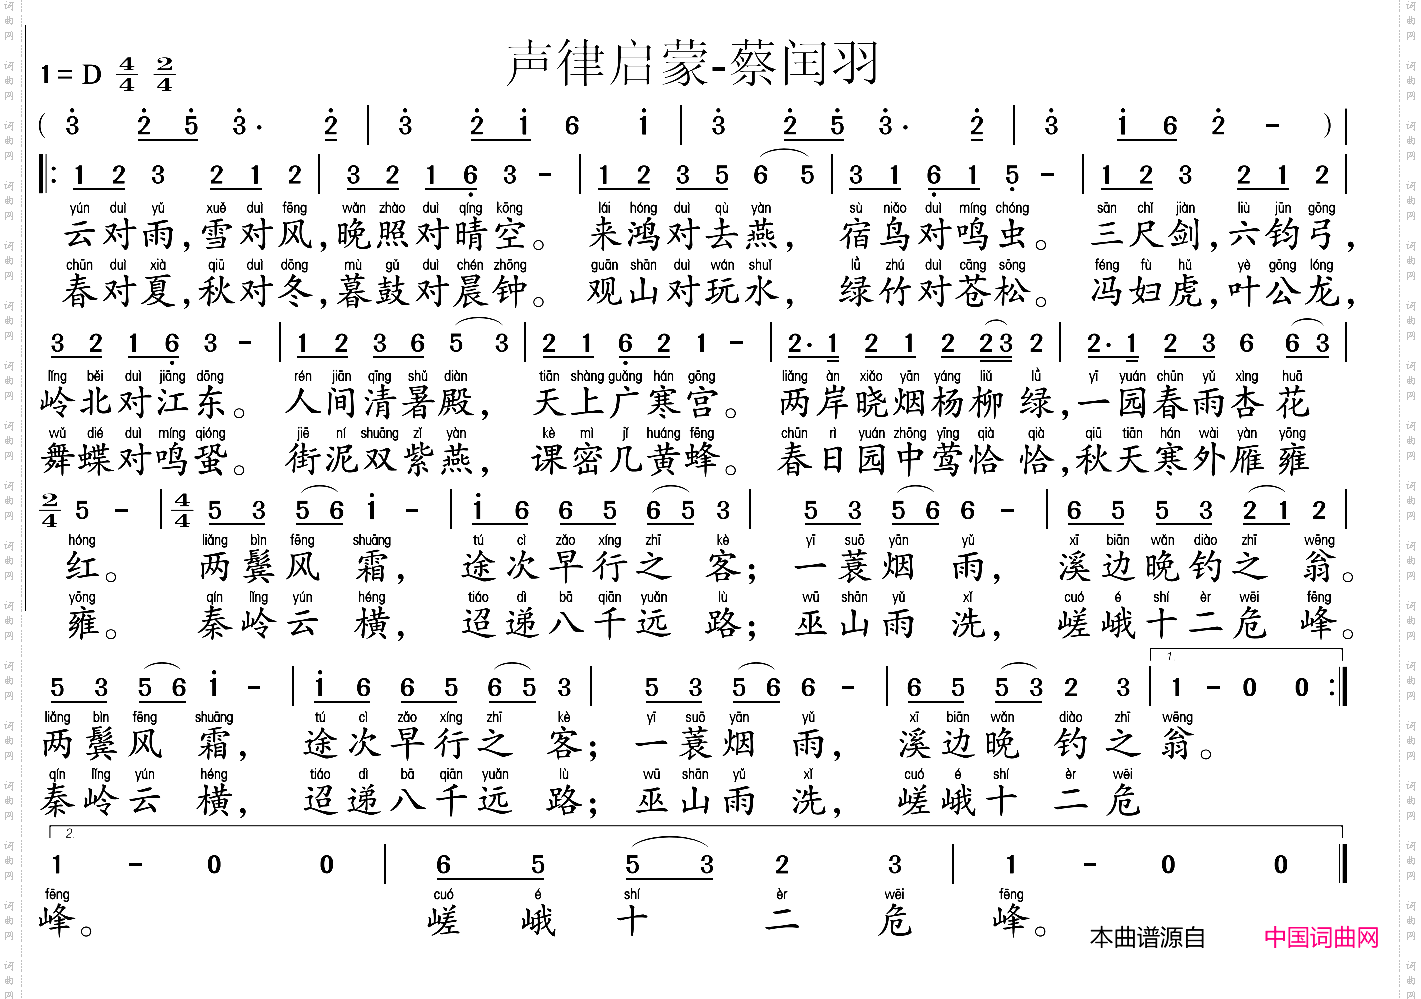 声律启蒙-蔡闰羽
1=D 4/4 2/4
( 3 2 5 3 · 2 | 3 2 1 6 1 | 3 2 5 3 · 2 | 3 1 6 2 - ) |
|: 1 2 3 2 1 2 | 3 2 1 6 3 - | 1 2 3 5 6 5 | 3 1 6 1 5 - | 1 2 3 2 1 2 |
yún duì yǔ xuě duì fēng wǎn zhào duì qíng kōng lái hóng duì qù yàn sù niǎo duì míng chóng sān chǐ jiàn liù jūn gōng
云对雨,雪对风,晚照对晴空。来鸿对去燕,宿鸟对鸣虫。三尺剑,六钧弓,
chūn duì xià qiū duì dōng mù gǔ duì chén zhōng guān shān duì wán shuǐ lǜ zhú duì cāng sōng féng fù hǔ yè gōng lóng
春对夏,秋对冬,暮鼓对晨钟。观山对玩水,绿竹对苍松。冯妇虎,叶公龙,
3 2 1 6 3 - | 1 2 3 6 5 3 | 2 1 6 2 1 - | 2· 1 2 1 2 2 3 2 | 2· 1 2 3 6 6 3 |
lǐng běi duì jiāng dōng rén jiān qīng shǔ diàn tiān shàng guǎng hán gōng liǎng àn xiǎo yān yáng liǔ lǜ yī yuán chūn yǔ xìng huā
岭北对江东。人间清暑殿,天上广寒宫。两岸晓烟杨柳绿,一园春雨杏花
wǔ dié duì míng qióng jiē ní shuāng zǐ yàn kè mì jǐ huáng fēng chūn rì yuán zhōng yīng qià qià qiū tiān hán wài yàn yōng
舞蝶对鸣蛩。街泥双紫燕,课密几黄蜂。春日园中莺恰恰,秋天寒外雁雍
2/4 5 - | 4/4 5 3 5 6 1 - | 1 6 6 5 6 5 3 | 5 3 5 6 6 - | 6 5 5 3 2 1 2 |
hóng liǎng bìn fēng shuāng tú cì zǎo xíng zhī kè yī suō yān yǔ xī biān wǎn diào zhī wēng
红。两鬓风霜,途次早行之客;一蓑烟雨,溪边晚钓之翁。
yōng qín lǐng yún héng tiáo dì bā qiān yuǎn lù wū shān yǔ xǐ cuó é shí èr wēi fēng
雍。秦岭云横,迢递八千远路;巫山雨洗,嵯峨十二危峰。
5 3 5 6 1 - | 1 6 6 5 6 5 3 | 5 3 5 6 6 - | 6 5 5 3 2 3 | 1. 1 - 0 0 :|
liǎng bìn fēng shuāng tú cì zǎo xíng zhī kè yī suō yān yǔ xī biān wǎn diào zhī wēng
两鬓风霜,途次早行之客;一蓑烟雨,溪边晚钓之翁。
qín lǐng yún héng tiáo dì bā qiān yuǎn lù wū shān yǔ xǐ cuó é shí èr wēi
秦岭云横,迢递八千远路;巫山雨洗,嵯峨十二危
2. 1 - 0 0 | 6 5 5 3 2 3 | 1 - 0 0 ‖
fēng cuó é shí èr wēi fēng
峰。嵯峨十二危峰。
本曲谱源自 中国词曲网